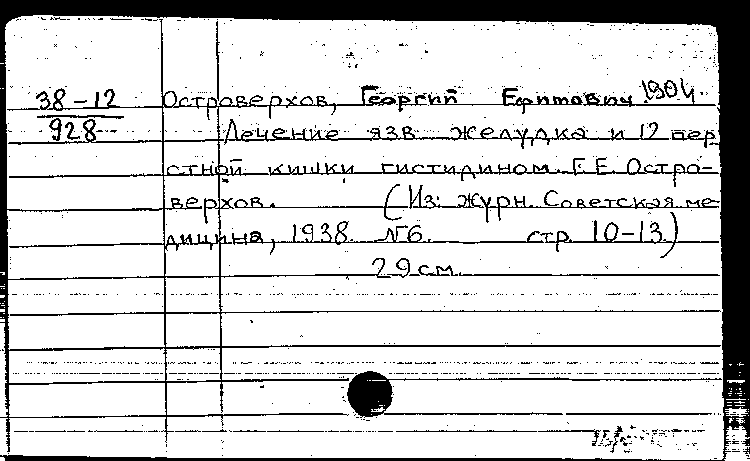 38-12
928
Островерхов, Георгий Ефимович 1904.
Лечение язв желудка и 12 пер
стной кишки гистидином. Г. Е. Остро-
верхов. (Из: журн. Советская ме
дицина, 1938. №6. стр. 10-13.)
29 см.